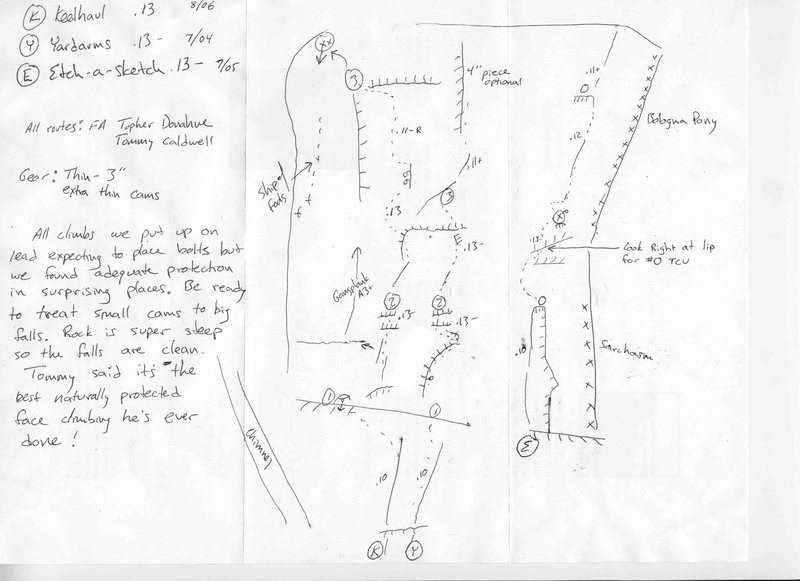 K Keelhaul .13 8/06
Y Yardarms .13- 7/04
E Etch-a-sketch .13- 7/05
All routes: FA Topher Donahue
Tommy Caldwell
Gear: Thin - 3"
extra thin cams
All climbs we put up on
lead expecting to place bolts but
we found adequate protection
in surprising places. Be ready
to treat small cams to big
falls. Rock is super steep
so the falls are clean.
Tommy said its the
best naturally protected
face climbing he's ever
done!
Chimney
xx
3
4" piece
optional
.11-R
.11+
Ship of
Fools
.13
3
.13-
Gangplank
A3+
2
2
.13-
.13-
1
1
.10
.10
K
Y
.11+
.12
Bologna Pony
x
.13-
Look Right at lip
for #0 TCU
.10
Sarchasm
E